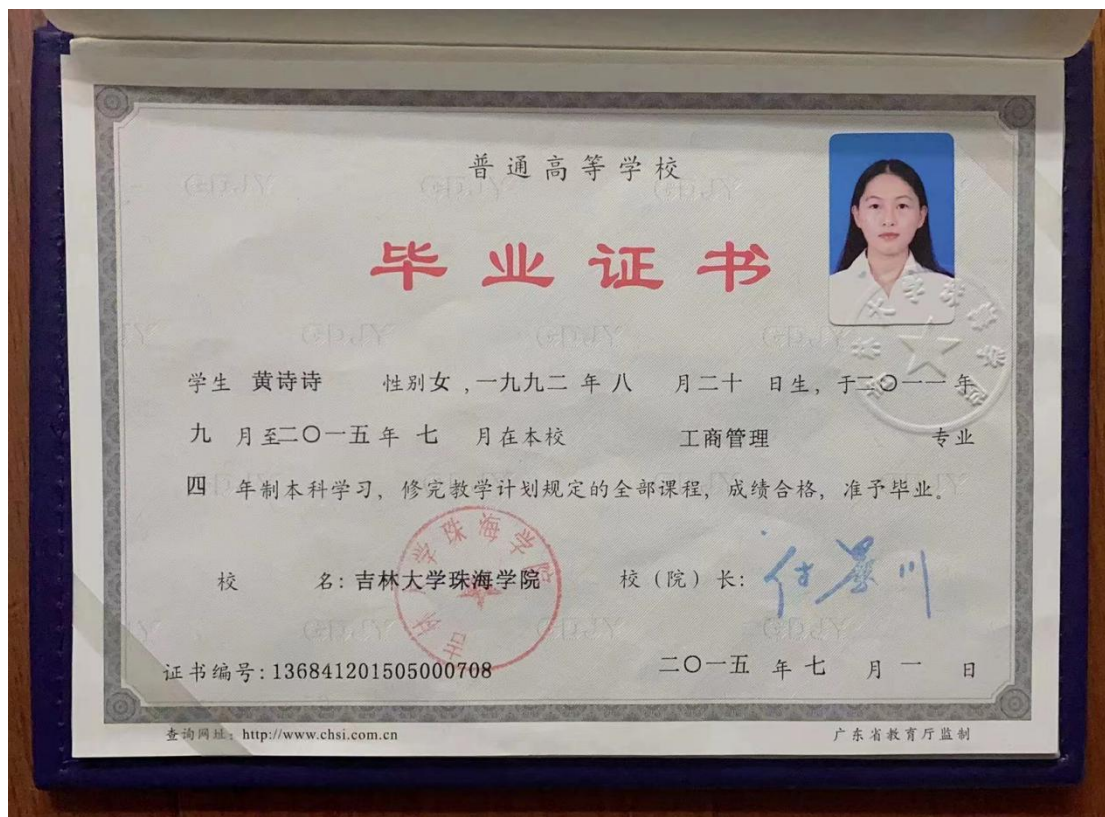 普通高等学校
毕业证书
学生 黄诗诗 性别女,一九九二 年 八 月二十 日生,于二〇一一年
九 月至二〇一五年 七 月在本校 工商管理 专业
四 年制本科学习,修完教学计划规定的全部课程,成绩合格,准予毕业。
校 名:吉林大学珠海学院 校(院)长:
吉林大学珠海学院
证书编号:136841201505000708 二〇一五 年 七 月 一 日
查询网址:http://www.chsi.com.cn 广东省教育厅监制